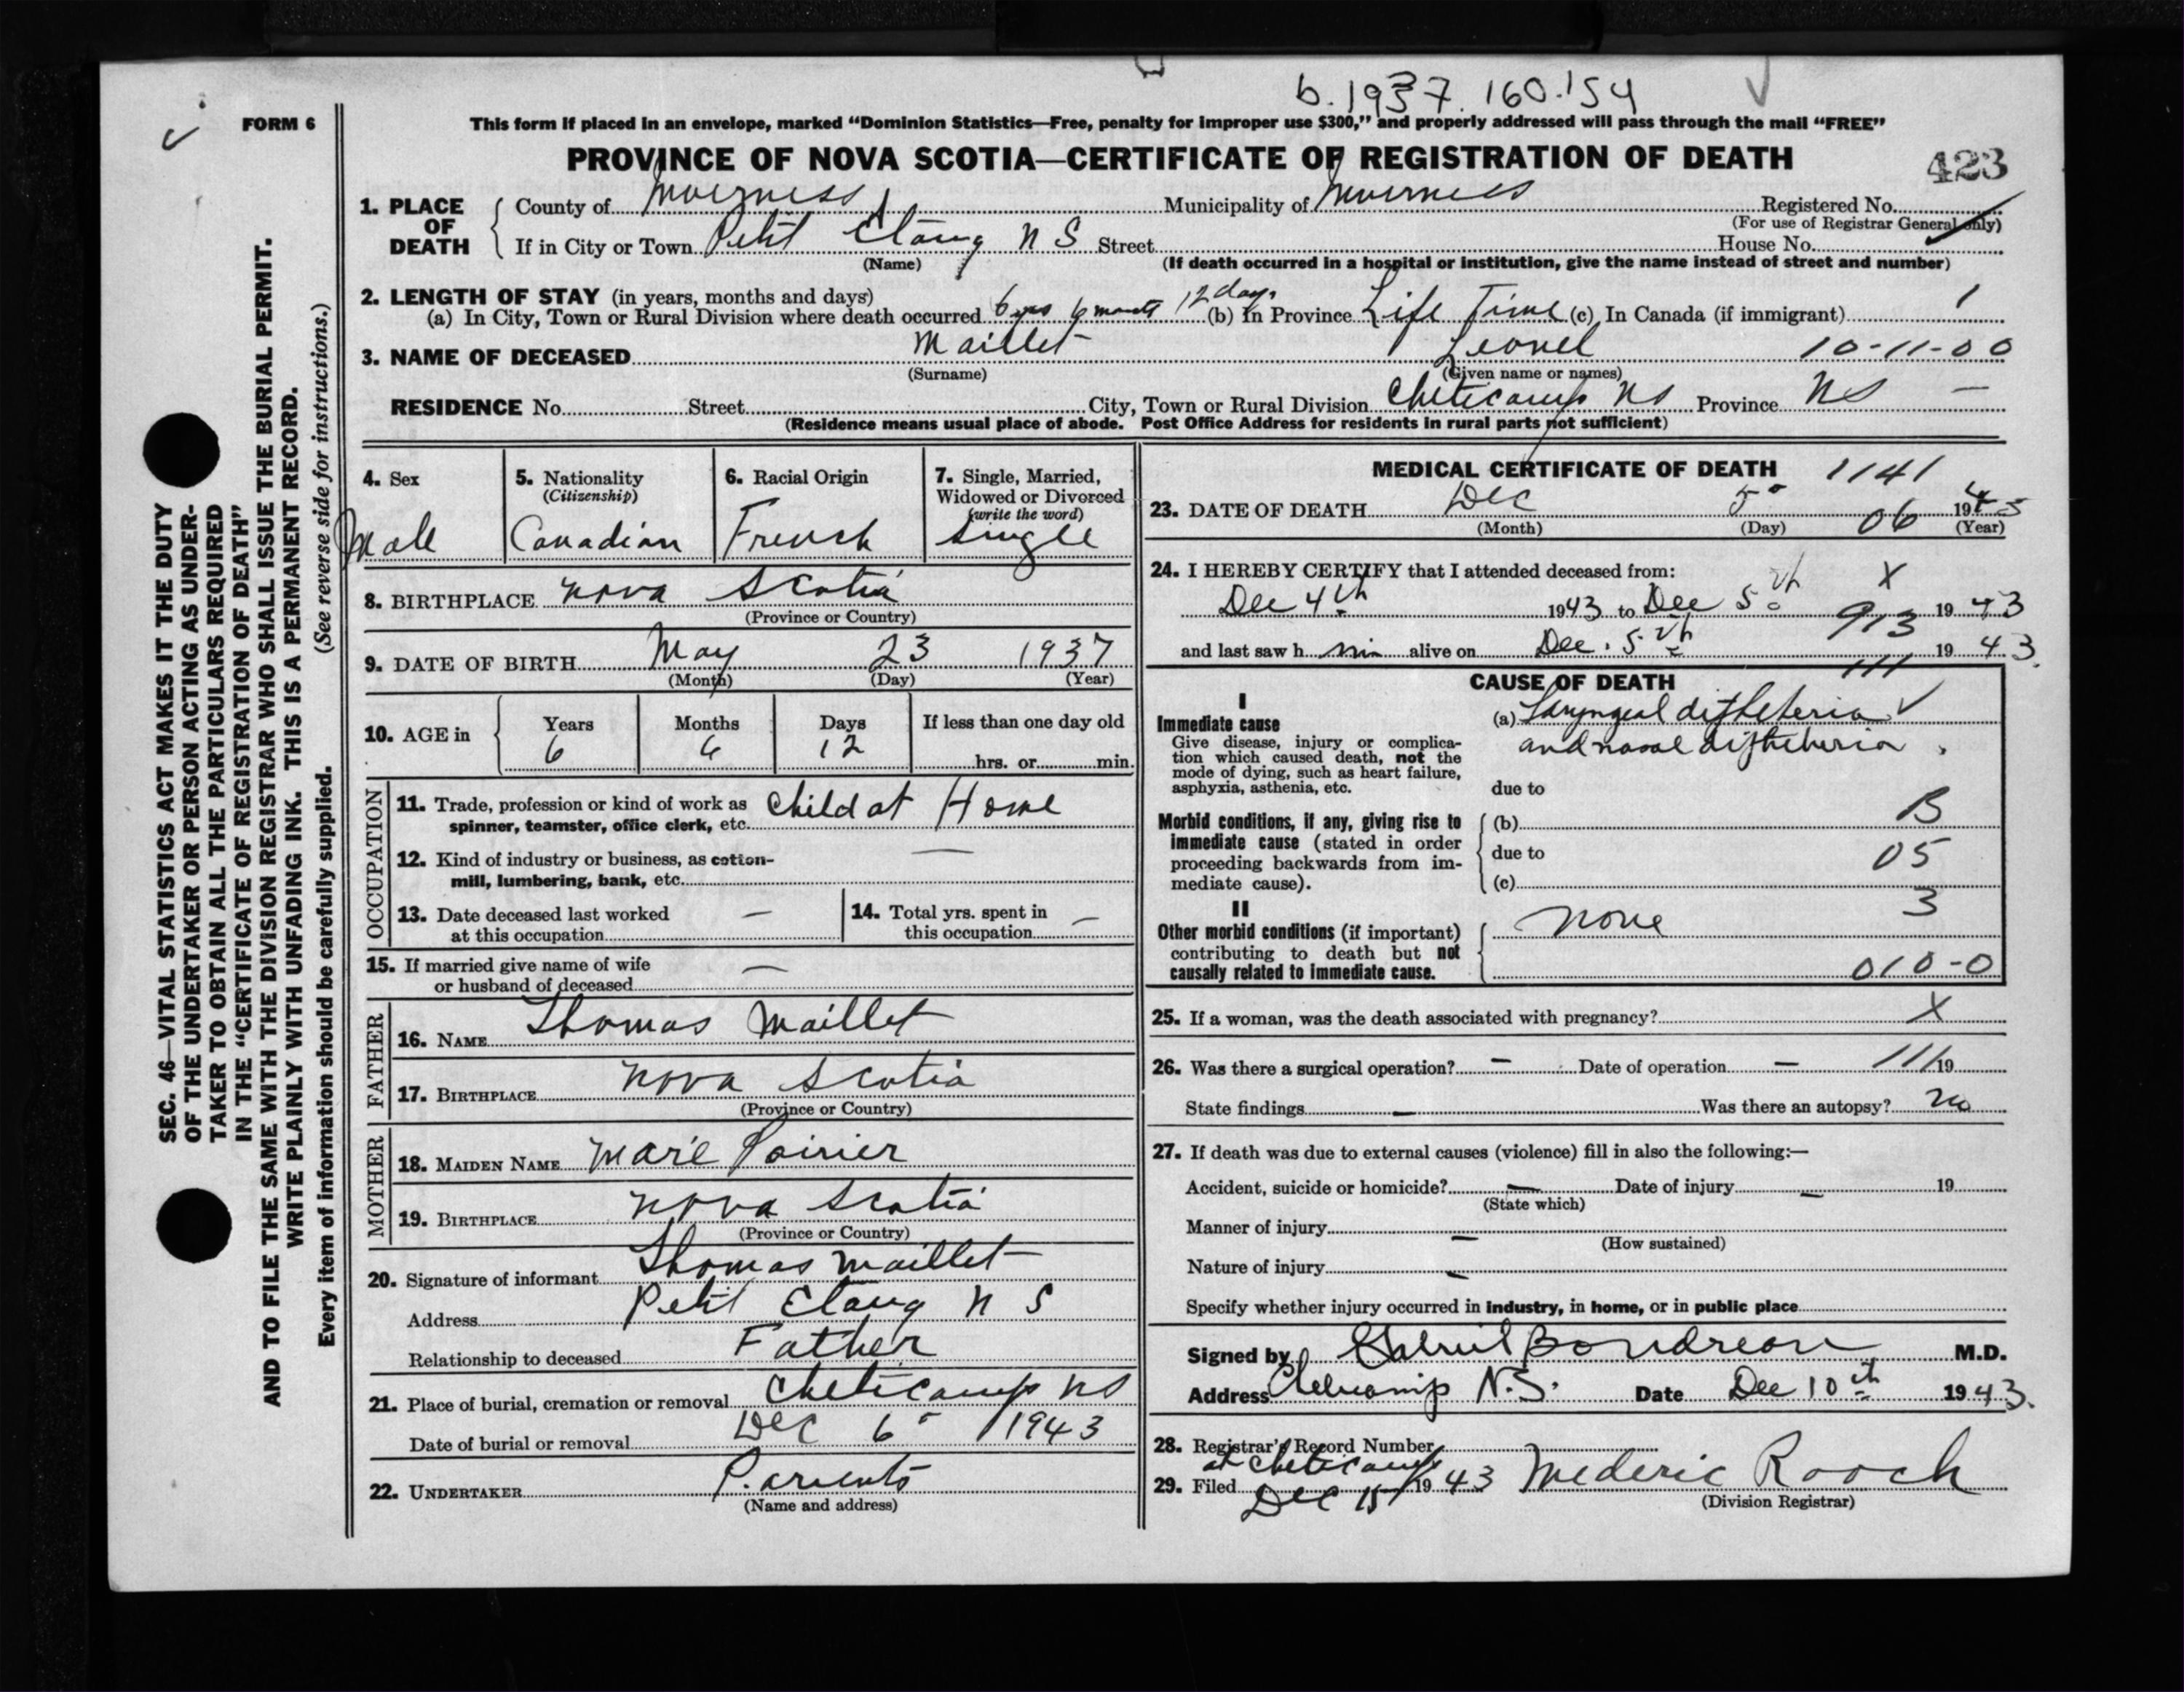 b. 1937. 160.154
FORM 6
This form if placed in an envelope, marked “Dominion Statistics—Free, penalty for improper use $300,” and properly addressed will pass through the mail “FREE”
PROVINCE OF NOVA SCOTIA—CERTIFICATE OF REGISTRATION OF DEATH
423
1. PLACE OF DEATH
County of Inverness Municipality of Inverness Registered No.
(For use of Registrar General only)
If in City or Town Petit Etang N S Street House No.
(Name) (If death occurred in a hospital or institution, give the name instead of street and number)
2. LENGTH OF STAY (in years, months and days)
(a) In City, Town or Rural Division where death occurred 6 yrs 6 months 12 days (b) In Province Life Time (c) In Canada (if immigrant) 1
3. NAME OF DECEASED Maillet Leonel 10-11-00
(Surname) (Given name or names)
RESIDENCE No. Street City, Town or Rural Division Cheticamp NS Province NS —
(Residence means usual place of abode. Post Office Address for residents in rural parts not sufficient)
4. Sex
Male
5. Nationality
(Citizenship)
Canadian
6. Racial Origin
French
7. Single, Married,
Widowed or Divorced
(write the word)
Single
8. BIRTHPLACE Nova Scotia
(Province or Country)
9. DATE OF BIRTH May 23 1937
(Month) (Day) (Year)
10. AGE in Years Months Days If less than one day old
6 6 12 hrs. or min.
OCCUPATION
11. Trade, profession or kind of work as Child at Home
spinner, teamster, office clerk, etc.
12. Kind of industry or business, as cotton- —
mill, lumbering, bank, etc.
13. Date deceased last worked —
at this occupation
14. Total yrs. spent in —
this occupation
15. If married give name of wife —
or husband of deceased
FATHER
16. NAME Thomas Maillet
17. BIRTHPLACE Nova Scotia
(Province or Country)
MOTHER
18. MAIDEN NAME Marie Poirier
19. BIRTHPLACE Nova Scotia
(Province or Country)
20. Signature of informant Thomas Maillet
Address Petit Etang N S
Relationship to deceased Father
21. Place of burial, cremation or removal Cheticamp NS
Date of burial or removal Dec 6 1943
22. UNDERTAKER Parents
(Name and address)
MEDICAL CERTIFICATE OF DEATH 1141
23. DATE OF DEATH Dec 5 06 1943
(Month) (Day) (Year)
24. I HEREBY CERTIFY that I attended deceased from: X
Dec 4th 1943 to Dec 5th 913 1943
and last saw him alive on Dec. 5th 1943.
111
CAUSE OF DEATH
I
Immediate cause
Give disease, injury or complica-
tion which caused death, not the
mode of dying, such as heart failure,
asphyxia, asthenia, etc.
(a) Laryngeal diftheteria
and nasal diftheteria.
due to
Morbid conditions, if any, giving rise to
immediate cause (stated in order
proceeding backwards from im-
mediate cause).
(b) B
due to 05
(c)
II
Other morbid conditions (if important)
contributing to death but not
causally related to immediate cause.
3
None
010-0
25. If a woman, was the death associated with pregnancy? X
26. Was there a surgical operation? — Date of operation — 111 19
State findings — Was there an autopsy? No
27. If death was due to external causes (violence) fill in also the following:—
Accident, suicide or homicide? — Date of injury — 19
(State which)
Manner of injury —
(How sustained)
Nature of injury —
Specify whether injury occurred in industry, in home, or in public place
Signed by Gabriel Boudreau M.D.
Address Cheticamp N.S. Date Dec 10th 1943.
28. Registrar's Record Number
at Cheticamp
29. Filed Dec 15 1943 Mederic Roach
(Division Registrar)
SEC. 46—VITAL STATISTICS ACT MAKES IT THE DUTY
OF THE UNDERTAKER OR PERSON ACTING AS UNDER-
TAKER TO OBTAIN ALL THE PARTICULARS REQUIRED
IN THE “CERTIFICATE OF REGISTRATION OF DEATH”
AND TO FILE THE SAME WITH THE DIVISION REGISTRAR WHO SHALL ISSUE THE BURIAL PERMIT.
WRITE PLAINLY WITH UNFADING INK. THIS IS A PERMANENT RECORD.
Every item of information should be carefully supplied. (See reverse side for instructions.)